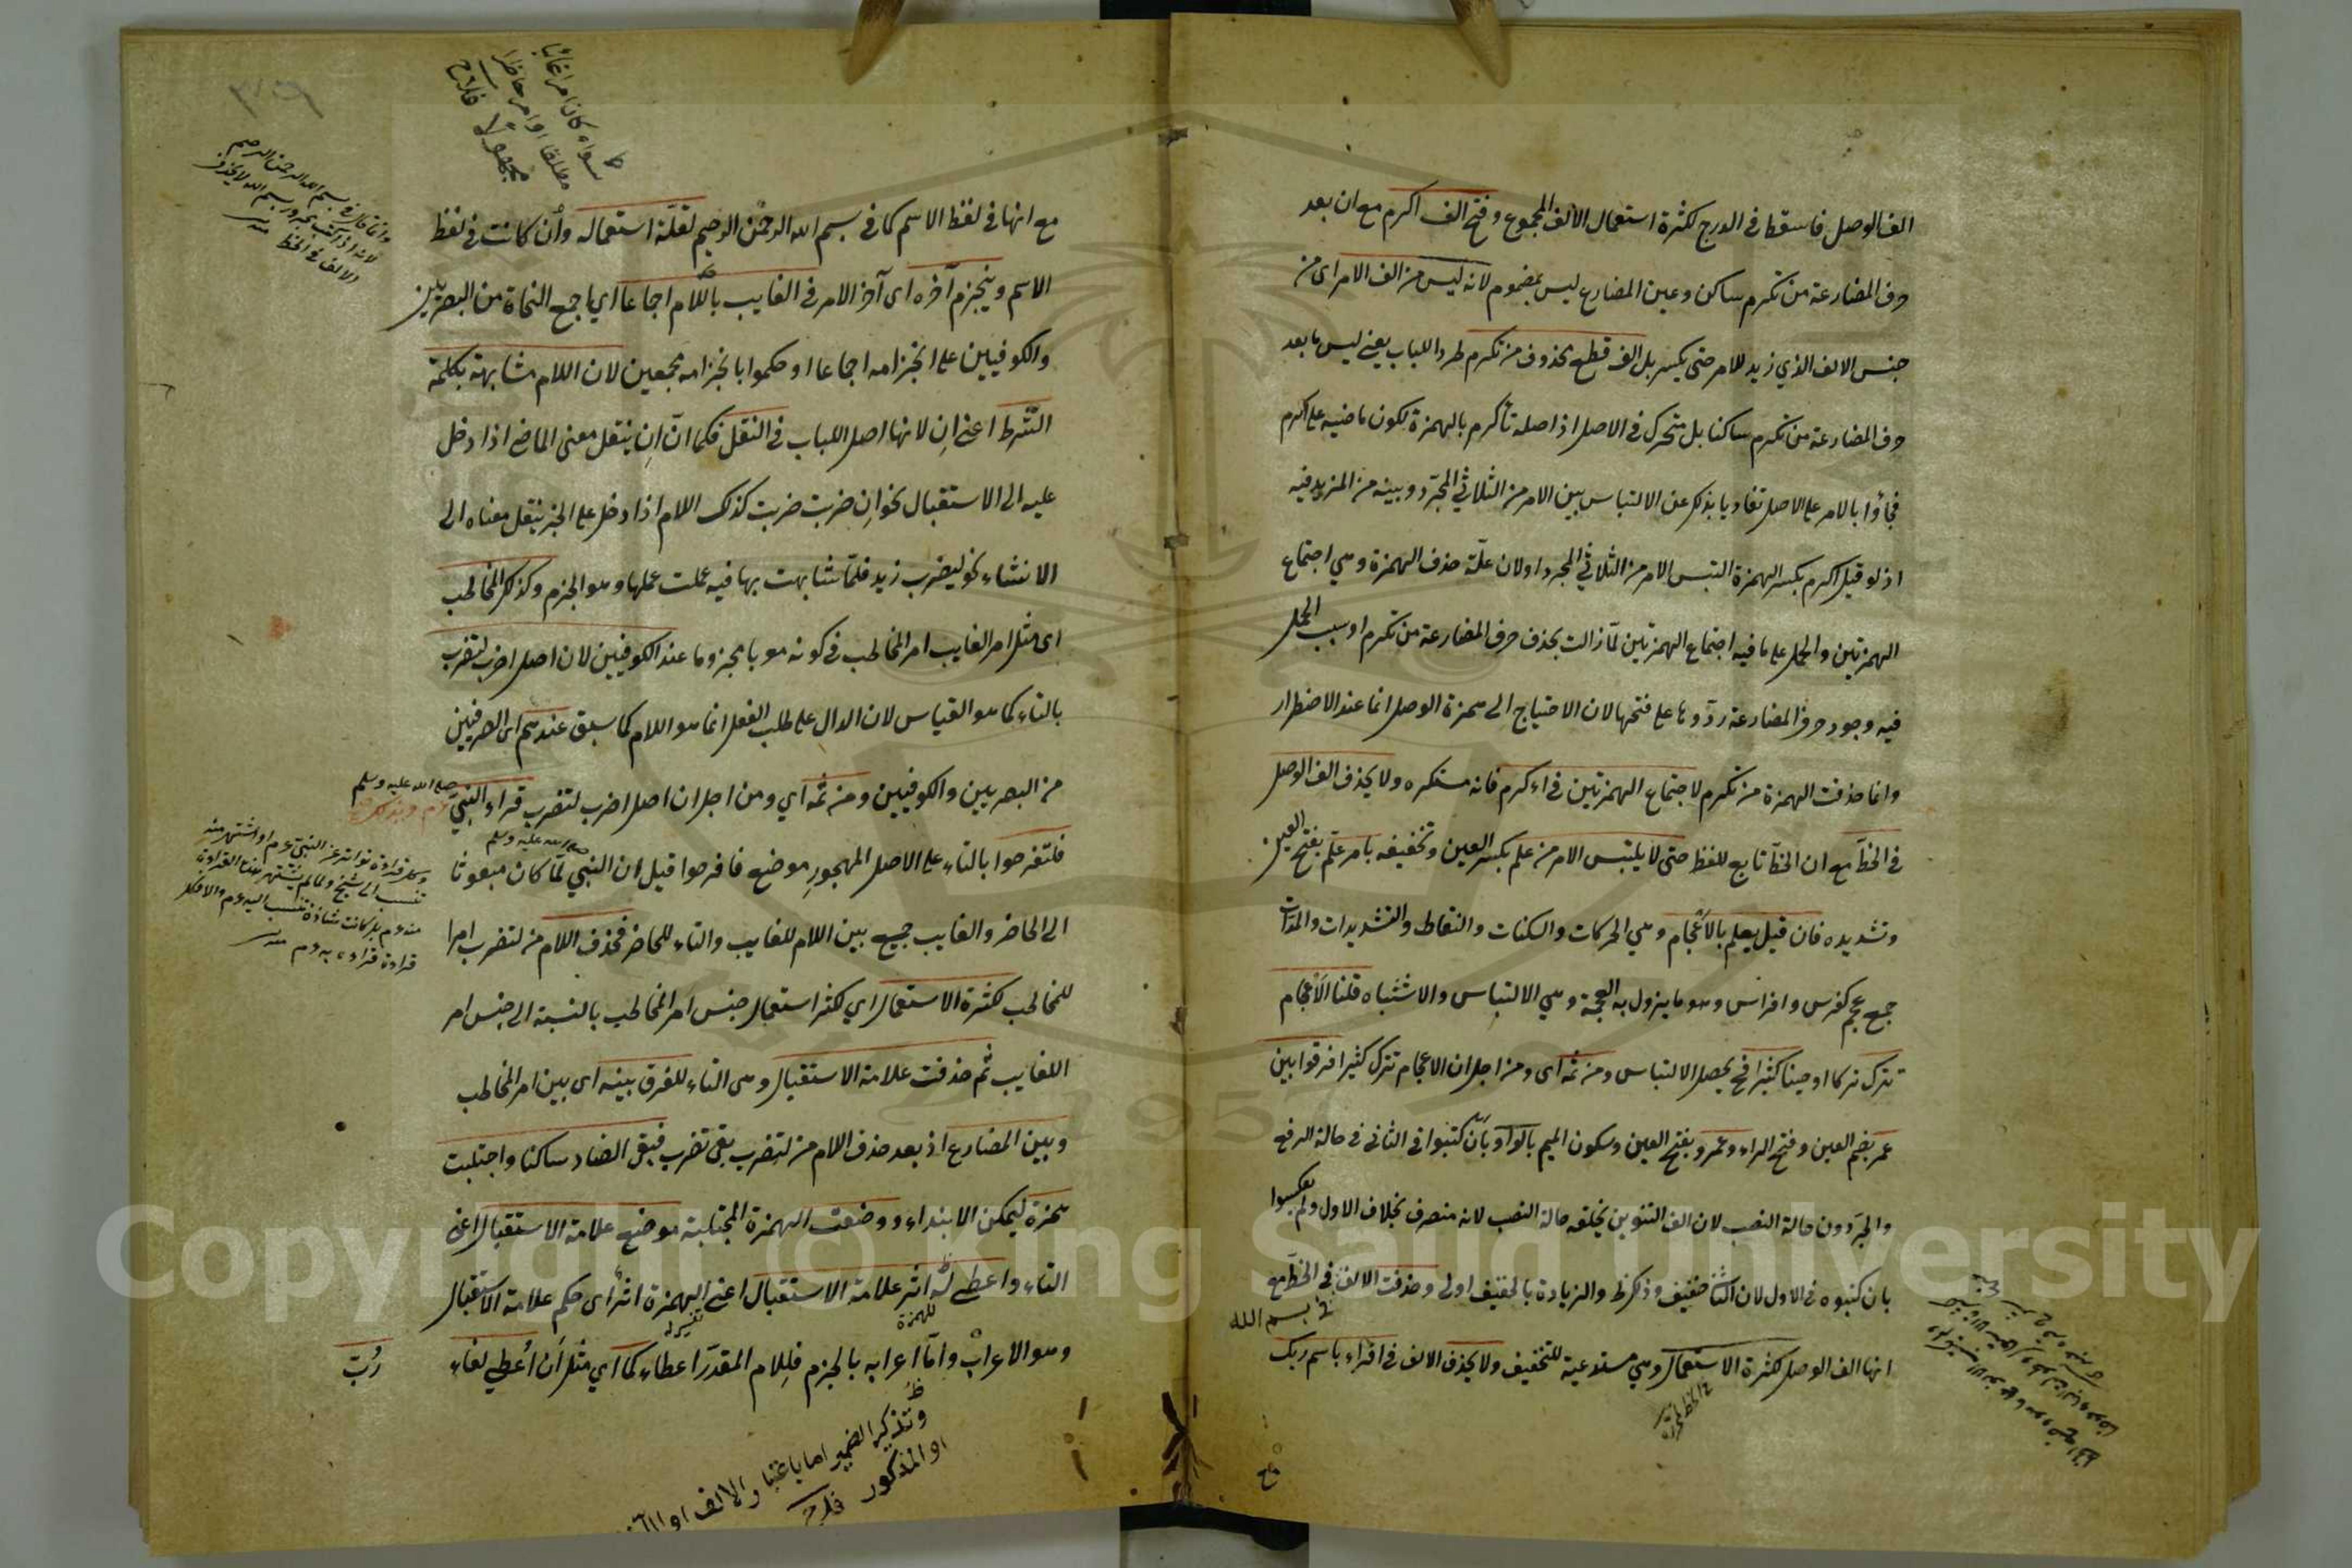 الف الوصل فاسقط في الدرج لكثرة استعمال الالف المجموع وفتح الف اكرم مع ان بعد
حرف المضارعة من تكرم ساكن وعين المضارع ليس بمضموم لانه ليس من الف الامر اى من
جنس الالف الذي زيد للامر حتى يكسر بل الف قطع محذوف من تكرم طردا للباب يعني ليس ما بعد
حرف المضارعة من تكرم ساكنا بل متحرك في الاصل اذ اصله تأكرم بالهمزة لكون ماضيه على اكرم
فجاؤا بالامر على الاصل تفاديا بذلك عن الالتباس بين الامر من الثلاثي المجرّد وبينه من المزيد فيه
اذ لو قيل اكرم بكسر الهمزة التبس الامر من الثلاثي المجرد اولان علّة حذف الهمزة وهي اجتماع
الهمزتين والحمل على ما فيه اجتماع الهمزتين لمّا زالت بحذف حرف المضارعة من تكرم او سبب الحمل
فيه وجود حرف المضارعة ردّوها على فتحها لان الاحتياج الى همزة الوصل انما عند الاضطرار
وانما حذفت الهمزة من تكرم لاجتماع الهمزتين في اءكرم فانه مستكره ولا يحذف الف الوصل
في الخطّ مع ان الخطّ تابع للفظ حتى لا يلتبس الامر من علم بكسر العين وتخفيفه بامر علّم بفتح العين
وتشديده فان قيل يعلم بالاعجام وهي الحركات والسكنات والنقاط والتشديدات والمدّات
جمع عجم كفرس وافراس وهو ما يزول به العجمة وهي الالتباس والاشتباه قلنا الاعجام
تترك تركا او حينا كثيرا فح يحصل الالتباس ومن ثمه اى ومن اجل ان الاعجام تترك كثيرا فرقوا بين
عمر بضم العين وفتح الراء وعمرو بفتح العين وسكون الميم بالواو بأن كتبوا في الثاني في حالة الرفع
والجرّ دون حالة النصب لان الف التنوين يخلفه حالة النصب لانه منصرف بخلاف الاول ولم يعكسوا
بان كتبوه في الاول لان الثاني خفيف وذلك والزيادة بالخفيف اولى وحذفت الالف في الخطّ مع
في بسم الله
انها الف الوصل لكثرة الاستعمال وهي مستدعية للتخفيف ولا يحذف الالف في اقراء باسم ربك
مع انها في لفظ الاسم كما في بسم الله الرحمن الرحيم لقلّة استعماله وأن كانت في لفظ
الاسم وينجزم آخره اى آخر الامر في الغايب باللام اجماعا اي اجمع النحاة من البصريين
والكوفيين على انجزامه اجماعا او حكموا بانجزامه مجمعين لان اللام مشابهة بكلمة
الشّرط اعني ان لانها اصل الباب في النقل فكما انّ ان ينقل معنى الماضي اذا دخل
عليه الى الاستقبال نحو ان ضربت ضربت كذلك اللام اذا دخل على الخبر ينقل معناه الى
الانشاء نحو ليضرب زيد فلمّا شابهت بها فيه عملت عملها وهو الجزم وكذلك المخاطب
اى مثل امر الغايب امر المخاطب في كونه معربا مجزوما عند الكوفيين لان اصل اضرب لتضرب
بالتاء كما هو القياس لان الدال على طلب الفعل انما هو اللام كما سبق عندهم اى الصرفيين
من البصريين والكوفيين ومن ثمّه اي ومن اجل ان اصل اضرب لتضرب قراء النبيّ
صلى الله عليه وسلم
فلتفرحوا بالتاء على الاصل المهجور موضع فافرحوا قيل ان النبي لمّا كان مبعوثا
صلى الله عليه وسلم
الى الحاضر والغايب جمع بين اللام للغايب والتاء للحاضر فحذف اللام من لتضرب امرا
للمخاطب لكثرة الاستعمال اي لكثر استعمال جنس امر المخاطب بالنسبة الى جنس امر
الغايب ثمّ حذفت علامة الاستقبال وهى التاء للفرق بينه اى بين امر المخاطب
وبين المضارع اذ بعد حذف اللام من لتضرب بقى تضرب فبقى الضاد ساكنا واجتلبت
همزة ليمكن الابتداء ووضعت الهمزة المجتلبة موضع علامة الاستقبال اعنى
التاء واعطى له اثر علامة الاستقبال اعني الهمزة اثر أى حكم علامة الاستقبال
للهمزة
وهو الاعراب وأمّا اعرابه بالجزم فللام المقدّر اعطاء كما اي مثل أن أعطي لفاء
رُبّ
سواء كان امرا غائبا
مطلقا او امر حاضرا
مجهولا فلاح
وتذكير الضمير اما باعتبار الالف او
او المذكور فلاح
Copyright © King Saud University
1957